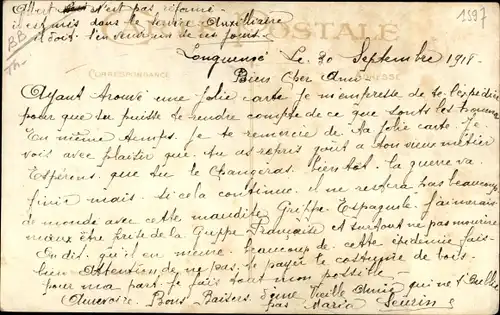 Albert n'est pas réformé
il est mis dans le service Auxilliaire
il doit t'en venir un de ces jours.
1597
BB
Th-
POSTALE
CORRESPONDANCE
Longueusé Le 30 Septembre 1918-
Biens Cher Ami
Ayant trouvé une jolie carte Je m'empresse de te l'expédier
pour que tu puisse te rendre compte de ce que sonts les homme
En même temps. Je te remercie de ta jolie carte Je
vois avec plaisir que tu as repris goût a ton vieux métier
Espérons que tu le Changeras. bientot la guerre va
finir mais si cela continue il ne restera pas beaucoup
de monde avec cette maudite Grippe Espagnole J'aimerais
mieux être prise de la Grippe Française et surtout ne pas mourire
On dit qu'il en meure beaucoup de cette épidémie fais
bien Attention de ne pas te payer le costume de bois
pour ma part Je fais tout mon possible
Aurevoire Bons Baisers d'une Vieille Amie qui ne t'oublie
pas Maria Seurin